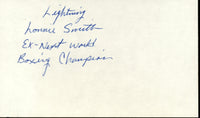 Lightning
Lonnie Smith
Ex-Next World
Boxing Champion